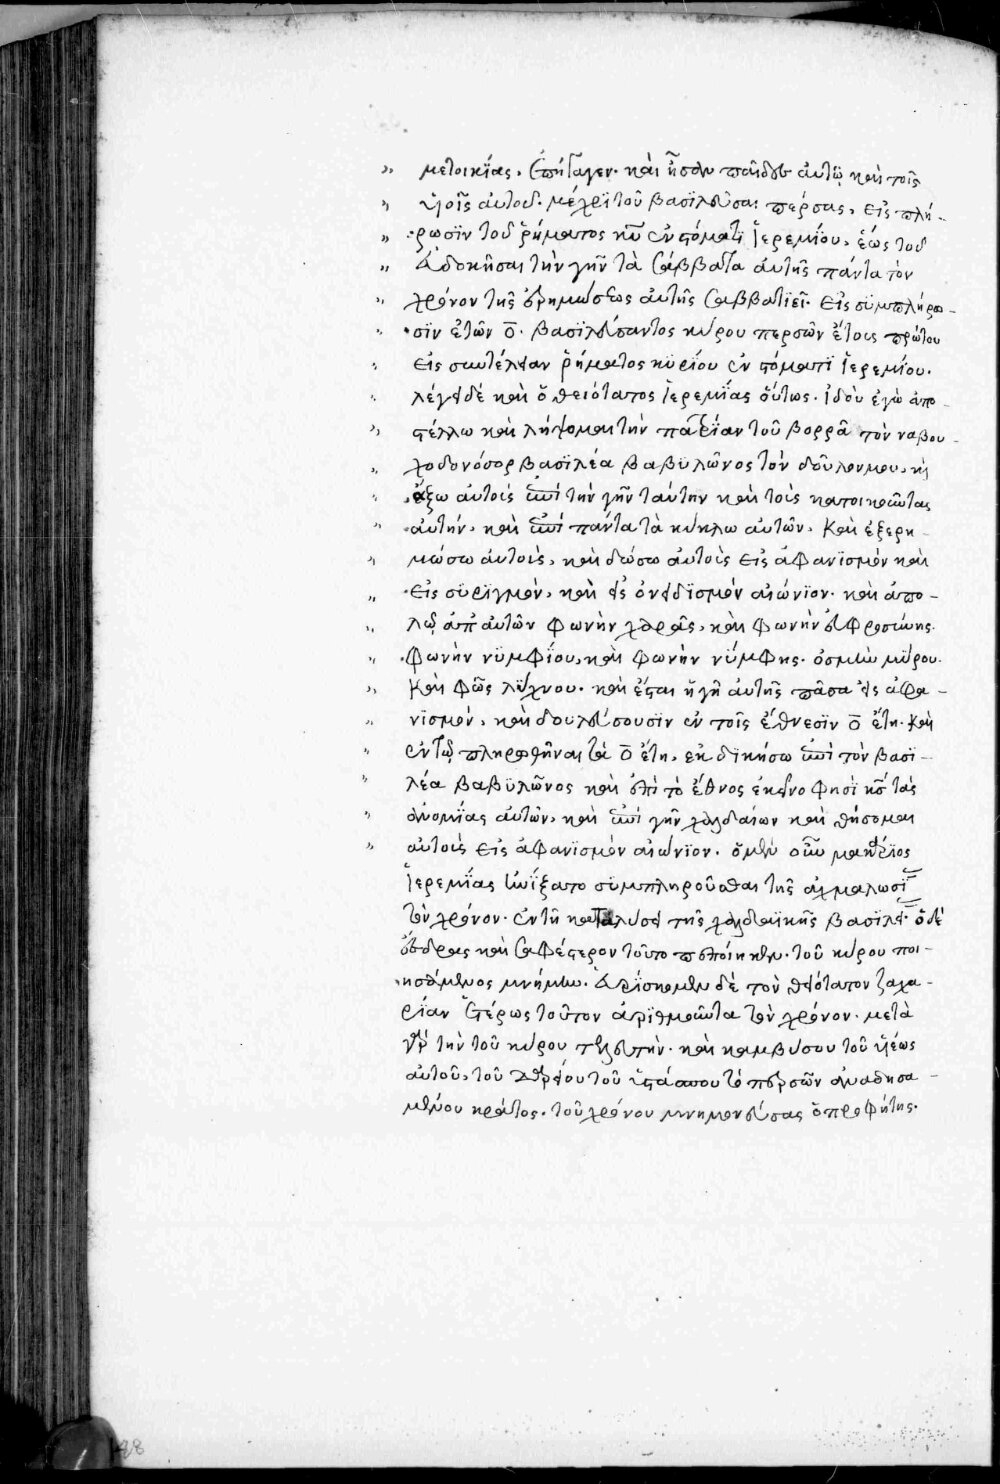 μετοικίας, ἐπήγαγεν. καὶ ἦσαν παῖδες αὐτῷ καὶ τοῖς
ὑοῖς αὐτοῦ. μέχρι τοῦ βασιλεῦσαι πέρσας, εἰς πλή-
ρωσιν τοῦ ῥήματος κυ ἐν στόματι ἱερεμίου, ἕως τοῦ
εὐδοκῆσαι τὴν γῆν τὰ σάββατα αὐτῆς πάντα τὸν
χρόνον τῆς ἐρημώσεως αὐτῆς σαββατιεῖ. εἰς συμπλήρω-
σιν ἐτῶν ο. βασιλεύσαντος κύρου περσῶν ἔτους πρώτου
εἰς συντέλειαν ῥήματος κυρίου ἐν στόματι ἱερεμίου.
λέγει δὲ καὶ ὁ θειότατος ἱερεμίας οὕτως. ἰδοὺ ἐγὼ ἀπο-
στέλλω καὶ λήψομαι τὴν πατριὰν τοῦ βορρᾶ τὸν ναβου-
χοδονόσορ βασιλέα βαβυλῶνος τὸν δοῦλον μου, κὶ
ἄξω αὐτοὺς ἐπὶ τὴν γῆν ταύτην καὶ τοὺς κατοικοῦντας
αὐτήν, καὶ ἐπὶ πάντα τὰ κύκλω αὐτῶν. καὶ ἐξερη-
μώσω αὐτοὺς, καὶ δώσω αὐτοὺς εἰς ἀφανισμὸν καὶ
εἰς συριγμὸν, καὶ εἰς ὀνειδισμὸν αἰώνιον. καὶ ἀπο-
λῶ ἀπ αὐτῶν φωνὴν χαρᾶς, καὶ φωνὴν εὐφροσύνης.
φωνὴν νυμφίου, καὶ φωνὴν νύμφης. ὀσμὴν μύρου.
καὶ φῶς λύχνου. καὶ ἔσται ἡ γῆ αὐτῆς πᾶσα εἰς ἀφα-
νισμὸν, καὶ δουλεύσουσιν ἐν τοῖς ἔθνεσιν ο ἔτη. καὶ
ἐν τῶ πληρωθῆναι τὰ ο ἔτη, ἐκδικήσω ἐπὶ τὸν βασι-
λέα βαβυλῶνος καὶ ἐπὶ τὸ ἔθνος ἐκεῖνο φησὶ κσ τὰς
ἀνομίας αὐτῶν, καὶ ἐπὶ γῆν χαλδαίων καὶ θήσομαι
αὐτοὺς εἰς ἀφανισμὸν αἰώνιον. ὁ μὲν οὖν μακάριος
ἱερεμίας ἠνίξατο συμπληροῦσθαι τῆς αἰχμαλωσί
τὸν χρόνον. ἐν τῇ καταλύσει τῆς χαλδαϊκῆς βασιλεί. ὁ δὲ
ἔσδρας καὶ σαφέστερον τοῦτο πεποίηκεν. τοῦ κύρου ποι-
ησάμενος μνήμην. εὑρίσκομεν δὲ τὸν θειότατον ζαχα-
ρίαν ἑτέρως τοῦτον ἀριθμοῦντα τὸν χρόνον. μετὰ
γὰρ τὴν τοῦ κύρου τελευτὴν. καὶ καμβύσου τοῦ ὑέως
αὐτοῦ, τοῦ δαρείου τοῦ ὑστάσπου τὸ περσῶν ἀναδησα-
μένου κράτος. τοῦ χρόνου μνημονεύσας ὁ προφήτης.